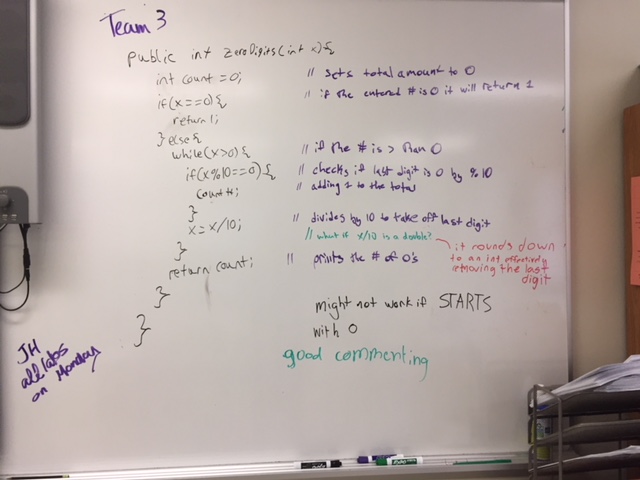 Team 3
public int zeroDigits(int x){
int count = 0; // sets total amount to 0
if(x==0){ // if the entered # is 0 it will return 1
return 1;
} else {
while(x>0){ // if the # is > than 0
if(x%10==0){ // checks if last digit is 0 by %10
count++; // adding 1 to the total
}
x = x/10; // divides by 10 to take off last digit
// what if x/10 is a double?
it rounds down
to an int effectively
removing the last
digit
}
return count; // prints the # of 0's
}
}
might not work if STARTS
with 0
good commenting
JH
all labs
on Monday